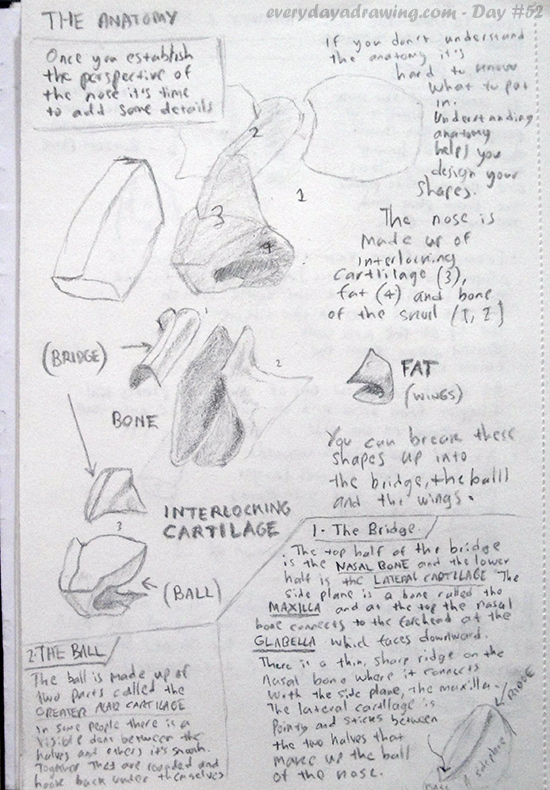 everydayadrawing.com - Day #52
THE ANATOMY
Once you establish
the perspective of
the nose it's time
to add some details
If you don't understand
the anatomy it's
hard to know
what to put
in.
Understanding
anatomy
helps you
design your
shapes.
2
1
3
4
The nose is
made up of
interlocking
cartlilage (3),
fat (4) and bone
of the skull (1, 2)
1
(BRIDGE)
2
BONE
FAT
(WINGS)
You can break these
shapes up into
the bridge, the ball
and the wings.
INTERLOCKING
CARTILAGE
3
(BALL)
1. The Bridge
. The top half of the bridge
is the NASAL BONE and the lower
half is the LATERAL CARTILAGE The
side plane is a bone called the
MAXILLA and at the top the nasal
bone connects to the forehead at the
GLABELLA which faces downward.
There is a thin, sharp ridge on the
nasal bone where it connects
with the side plane, the maxilla.
The lateral cartilage is
pointy and sticks between
the two halves that
make up the ball
of the nose.
RIDGE
side plane
2. THE BALL
The ball is made up of
two parts called the
GREATER ALAR CARTILAGE
In some people there is a
visible dent between the
halves and others it's smooth.
Together they are rounded and
hook back under themselves